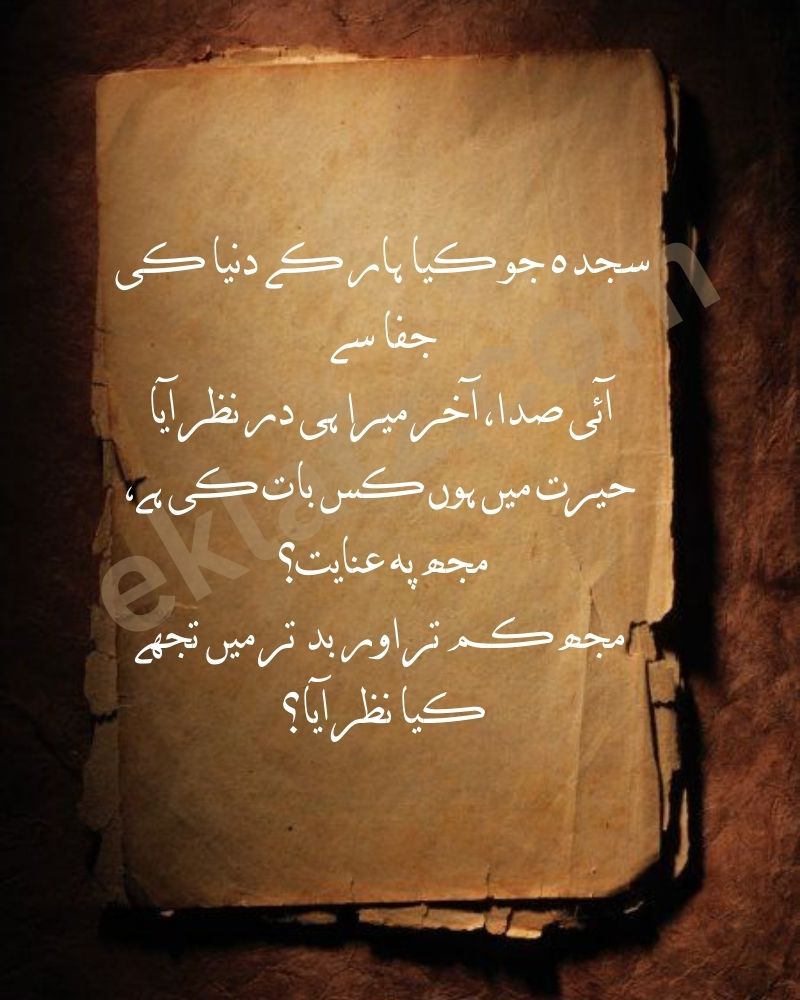 سجدہ جو کیا ہار کے دنیا کی
جفا سے
آئی صدا، آخر میرا ہی در نظر آیا
حیرت میں ہوں کس بات کی ہے،
مجھ پہ عنایت؟
مجھ کم تر اور بد تر میں تجھے
کیا نظر آیا؟